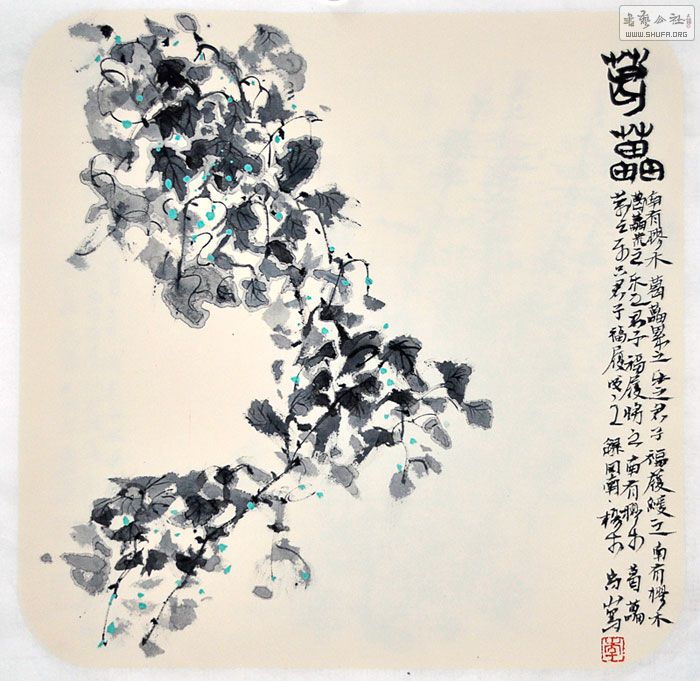 书艺公社
WWW.SHUFA.ORG
葛藟
南有樛木葛藟累之乐只君子福履綏之南有樛木
葛藟荒之乐只君子福履將之南有樛木葛藟
萦之乐只君子福履成之 周南樛木